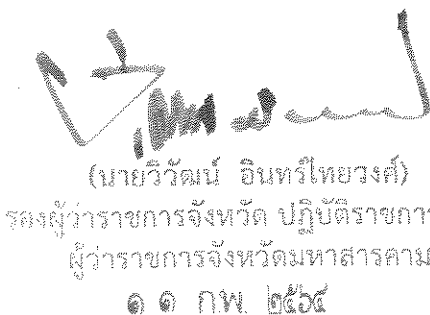 (นายวิวัฒน์ อินทร์ไทยวงศ์)
รองผู้ว่าราชการจังหวัด ปฏิบัติราชการ
ผู้ว่าราชการจังหวัดมหาสารคาม
๑ ๑ ก.พ. ๒๕๖๔